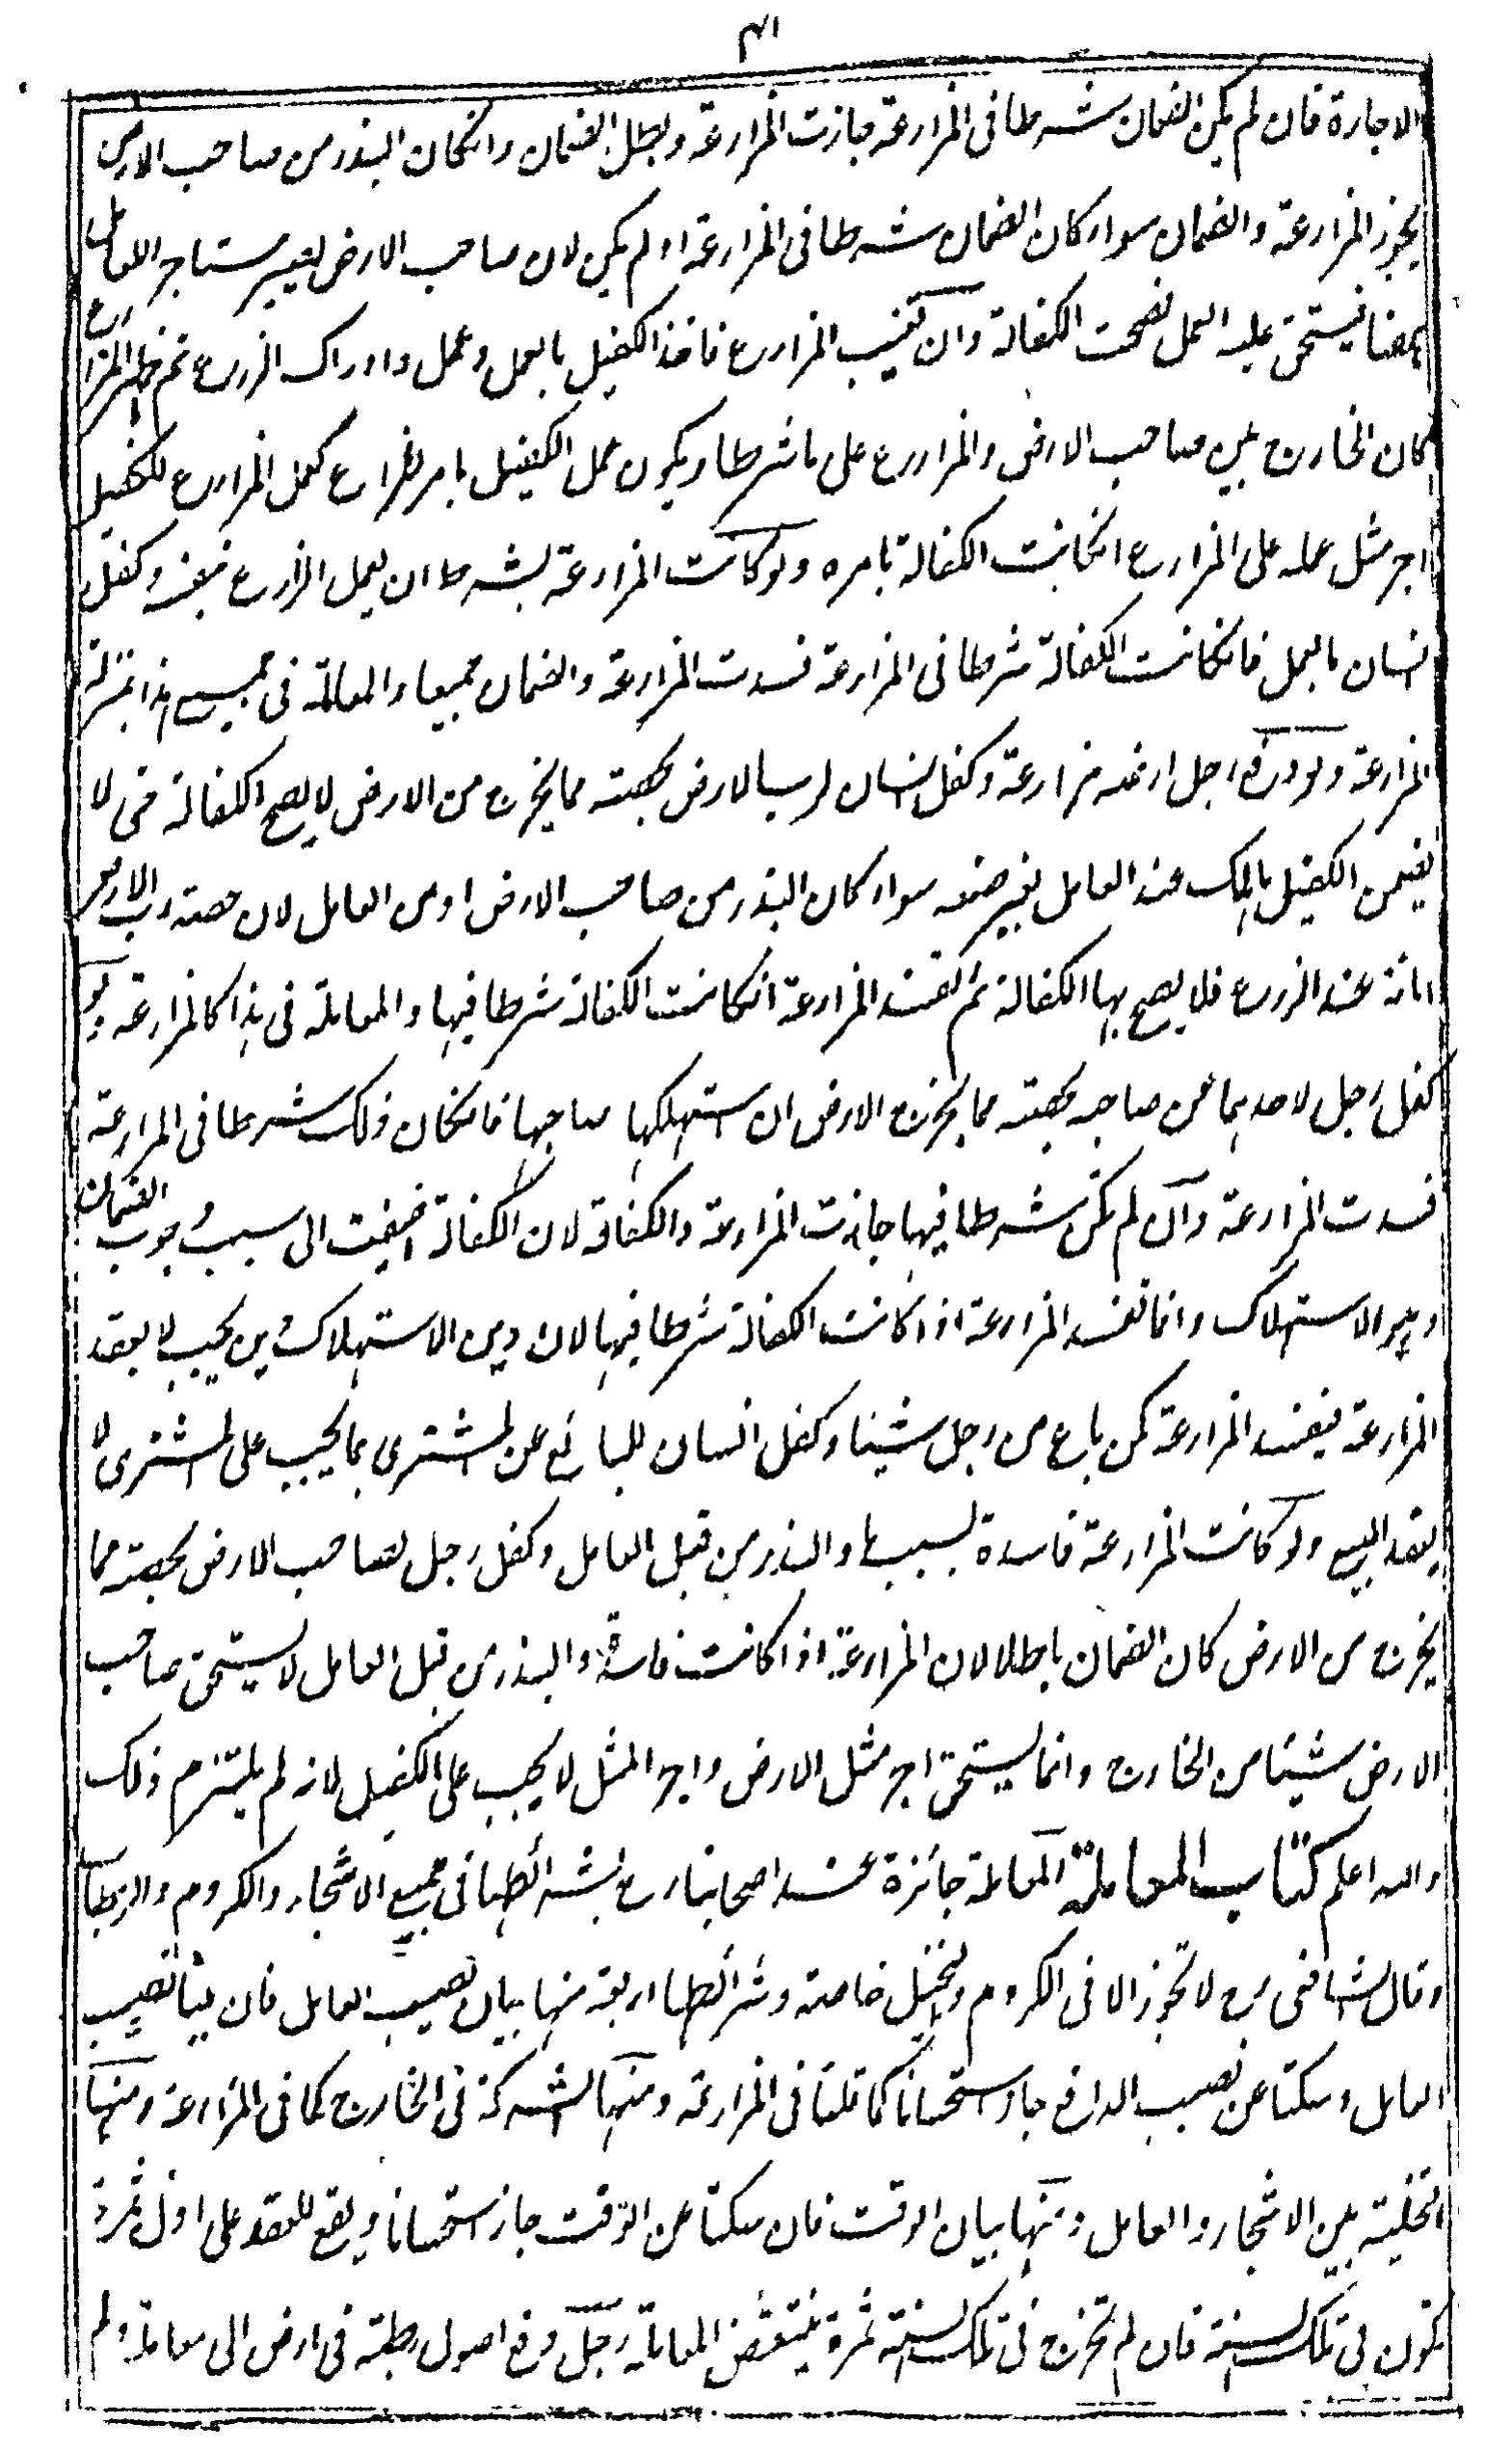 الاجارة فان لم يكن الضمان شرطا فى المزارعة جازت المزارعة وبطل الضمان وانكان البذر من صاحب الارض
يجوز المزارعة والضمان سواء كان الضمان شرطا فى المزارعة او لم يكن لان صاحب الارض يصير مستاجرا للعامل
ههنا فيستحق عليه العمل فصحت الكفالة وان تغيب المزارع فاخذ الكفيل بالعمل وعمل وادراك الزرع ثم ظهر المزارع
كان الخارج بين صاحب الارض والمزارع على ما شرطا ويكون عمل الكفيل بامر المزارع كعمل المزارع للكفيل
اجر مثل عمله على المزارع انكانت الكفالة بامره ولو كانت المزارعة بشرط ان يعمل المزارع بنفسه وكفل
انسان بالعمل فانكانت الكفالة شرطا فى المزارعة فسدت المزارعة والضمان جميعا والمعاملة فى جميع هذا بمنزلة
المزارعة ولو دفع رجل ارضه مزارعة وكفل انسان لرب الارض بحصته مما يخرج من الارض لا يصح الكفالة حتى لا
يضمن الكفيل ما هلك عند العامل بغير صنعه سواء كان البذر من صاحب الارض او من العامل لان حصته رب الارض
امانة عند الزرع فلا يصح بها الكفالة ثم تفسد المزارعة انكانت الكفالة شرطا فيها والمعاملة فى هذا كالمزارعة ولو
كفل رجل لاحدهما عن صاحبه بحصته مما يخرج الارض ان استهلكها صاحبها فانكان ذلك شرطا فى المزارعة
فسدت المزارعة وان لم تكن شرطا فيها جازت المزارعة والكفالة لان الكفالة اضيفت الى سبب وجوب الضمان
وهو الاستهلاك وانما تفسد المزارعة اذا كانت الكفالة شرطا فيها لان دين الاستهلاك دين يجب لا بعقد
المزارعة فيفسد المزارعة كمن باع من رجل شيئا وكفل انسان للبائع عن المشترى بما يجب على المشترى لا
بعقد البيع ولو كانت المزارعة فاسدة بسببها والبذر من قبل العامل وكفل رجل لصاحب الارض بحصته مما
يخرج من الارض كان الضمان باطلا لان المزارعة اذا كانت فاسدة والبذر من قبل العامل لا يستحق صاحب
الارض شيئا من الخارج وانما يستحق اجر مثل الارض واجر المثل لا يجب على الكفيل لانه لم يلتزم ذلك
والله اعلم كتاب المعاملة المعاملة جائزة عند اصحابنا رح بشرائطها فى جميع الاشجار والكروم والرطاب
وقال الشافعى رح لا تجوز الا فى الكروم والنخيل خاصة وشرائطها اربعة منها بيان نصيب العامل فان بينا نصيب
العامل وسكتا عن نصيب الدافع جاز استحسانا كما قلنا فى المزارعة ومنها الشركة فى الخارج كما فى المزارعة ومنها
التخلية بين الاشجار والعامل ومنها بيان الوقت فان سكتا عن الوقت جاز استحسانا ويقع العقد على اول ثمرة
تكون فى تلك السنة فان لم تخرج فى تلك السنة ثمرة ينتقض المعاملة رجل دفع اصول رطبة فى ارض الى معاملة ولم